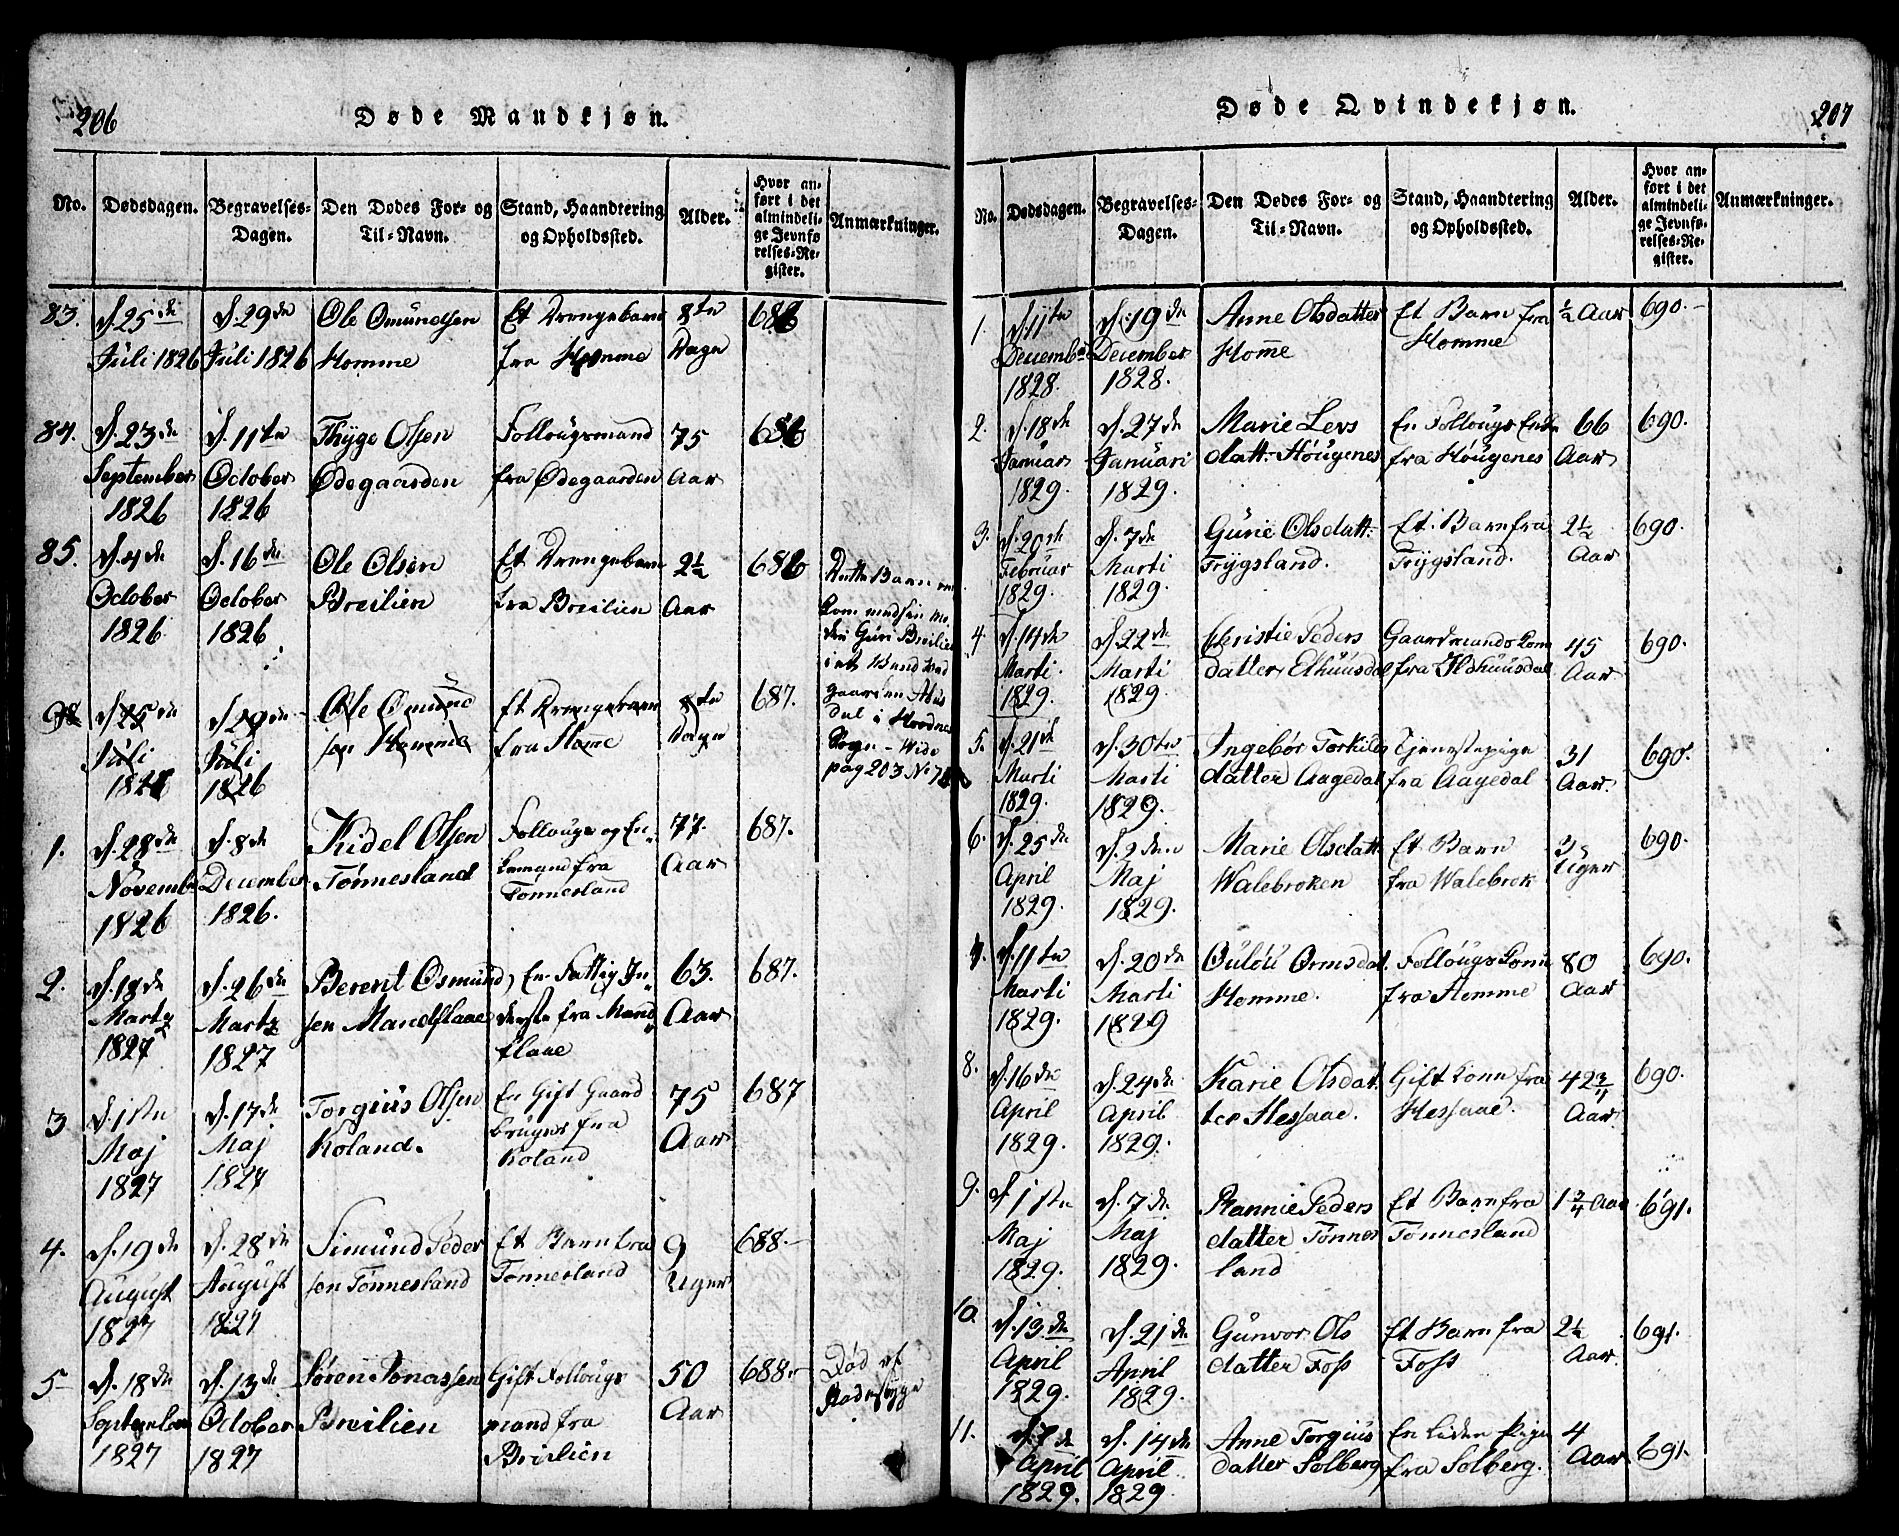 206
Døde Mandkjøn.
No. Dødsdagen. Begravelses-Dagen. Den Dødes For- og Til-Navn. Stand, Haandtering og Opholdssted. Alder. Hvor anført i det almindelige Jevnførelses-Register. Anmærkninger.
83. d. 25de d. 29de Ole Omundsen Et Drengebarn 8te 686
Juli 1826 Juli 1826 Homme fra Homme Dage
84. d. 23de d. 11te Thyge Olsen Follougsmand 75 686
September October Ødegaarden fra Ødegaarden Aar
1826 1826
85. d. 4de d. 16de Ole Olsen Et Drengebarn 2½ 686
October October Breilien fra Breilien Aar
1826 1826
Dette Barn
kom med sin Mo-
der Guri Breilien
i et Vand ved
gaarden
dal i
Sogn - Vide
pag 203 No
d. 25de d. 29de Ole Omund Et Drengebarn 8te 687.
Juli Juli sen Homme fra Homme Dage
1826 1826
1. d. 28de d. 8de Kidel Olsen Follougs og En- 77. 687.
Novemb December Tønnesland kemand fra Aar
1826 1826. Tønnesland
2. d. 18de d. 26de Berent Osmund En Fattig In- 63. 687.
Marty Marty sen Mandflaae derste fra Mand Aar
1827 1827 flaae
3 d. 1ste d. 17de Torgius Olsen En Gift Gaard 75 687
Maj Maj Koland. bruger fra Aar
1827 1827 Koland
4. d. 19de d. 28de Simund Peder Et Barn fra 9 688.
August August sen Tønnesland Tønnesland Uger
1827 1827
5 d. 18de d. 13de Søren Jonassen Gift Follougs 50 688.
September October Breilien mand fra Aar
1827 1827 Breilien
Død af
Radesyge
207
Døde Qvindekjøn.
No. Dødsdagen. Begravelses-Dagen. Den Dødes For- og Til-Navn. Stand, Haandtering og Opholdssted. Alder. Hvor anført i det almindelige Jevnførelses-Register. Anmærkninger.
1. d. 11te d. 19de Anne Olsdatter Et Barn fra ½ Aar 690.
Decembr December Homme Homme
1828. 1828.
2. d. 18de d. 27de Marie Levs En Follougs Enke 66 690.
Januar Januari datt. Høugenes fra Høugenes Aar
1829. 1829.
3. d. 20de d. 7de Gurie Olsdatt. Et Barn fra 2½ 690.
Februar Marti Trygsland. Trygsland. Aar
1829. 1829.
4 d. 14de d. 22de Christie Peders Gaardmands Kone 45 690.
Marti Marti datter Elhuusdal fra Ilshuusdal Aar
1829. 1829.
5. d. 21de d. 30te Ingebor Torkils Tjenestepige 31 690.
Marti Marti datter Aagedal fra Aagedal Aar.
1829. 1829.
6. d. 25de d. 2den Marie Olsdatt Et Barn 3 690.
April Maj Walebroken fra Walebrok Uger
1829. 1829.
7. d. 11te d. 20de Oulou Ormsdat. Follougs Kone 80 690.
Marti Marti Homme. fra Homme Aar
1829. 1829
8. d. 16de d. 24de Karie Olsdat. Gift Kone fra 42¾ 690.
April April ter Hessaae. Hessaae. Aar.
1829. 1829.
9. d. 1ste d. 7de Rannie Peders Et Barn fra 1¾ Aar 691.
Maj Maj datter Tønnes Tønnesland
1829. 1829. land
10. d. 13de d. 21de Gunvor Ols Et Barn fra 2½ 691.
April April datter Foss Foss Aar.
1829. 1829.
11. d. 7de d. 14de Anne Torgius En Liden Pige 4 691.
April April datter Solberg fra Solberg. Aar
1829. 1829